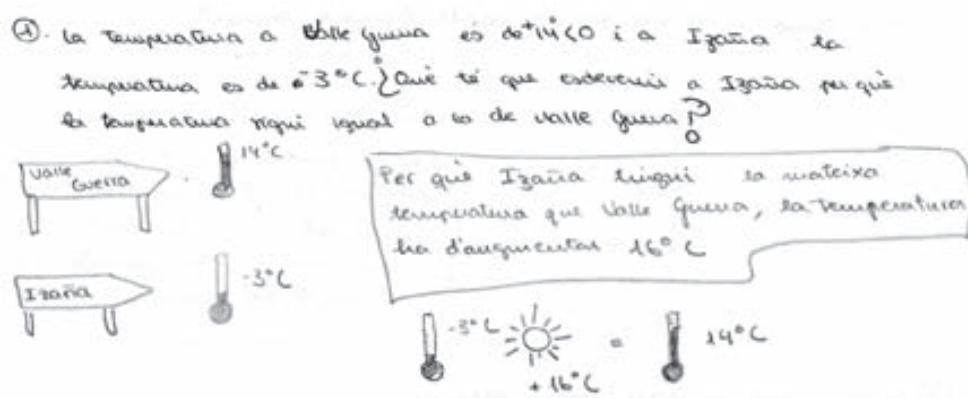 ①. La temperatura a Valle Guerra es de +14°C i a Izaña la
temperatura es de -3°C. ¿Què té que esdevenir a Izaña per què
la temperatura sigui igual a la de Valle Guerra?
Valle Guerra
14°C
Izaña
-3°C
Per què Izaña tingui la mateixa
temperatura que Valle Guerra, la temperatura
ha d'augmentar 16°C
-3°C
+16°C
=
14°C